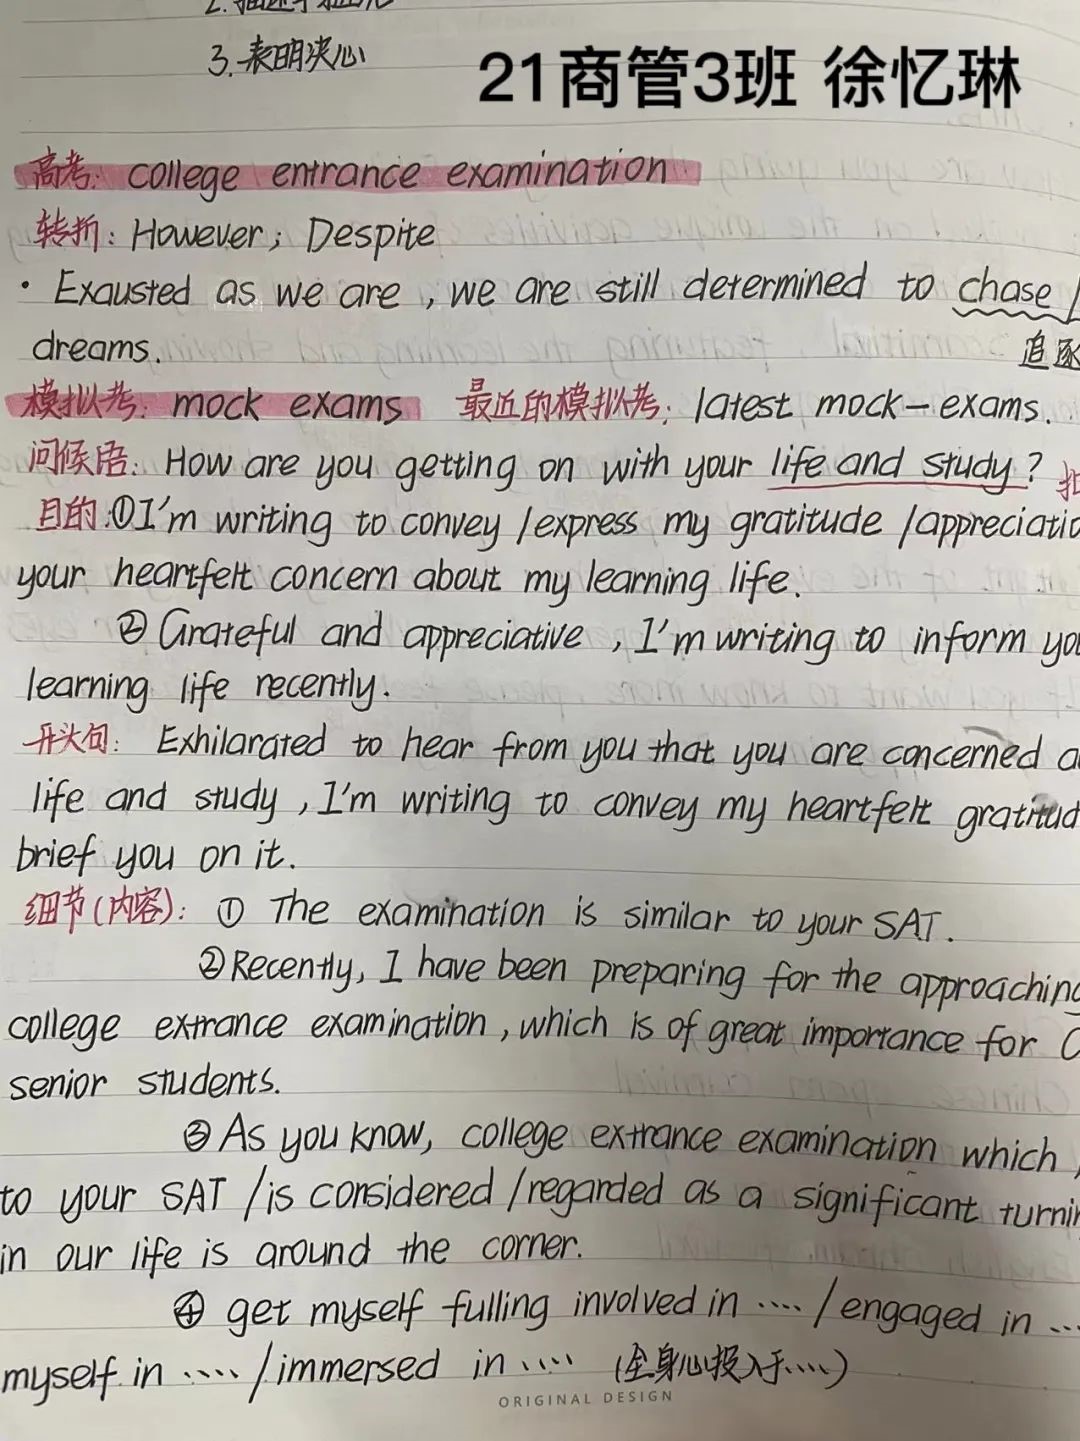 3.表明决心
21商管3班 徐忆琳
高考: college entrance examination
转折: However; Despite
· Exausted as we are , we are still determined to chase
dreams.
追逐
模拟考: mock exams 最近的模拟考: latest mock-exams.
问候语: How are you getting on with your life and study?
目的:①I'm writing to convey /express my gratitude /appreciatio
your heartfelt concern about my learning life.
② Grateful and appreciative , I'm writing to inform you
learning life recently.
开头句: Exhilarated to hear from you that you are concerned a
life and study , I'm writing to convey my heartfelt gratitud
brief you on it.
细节(内容): ① The examination is similar to your SAT.
②Recently, I have been preparing for the approaching
college extrance examination, which is of great importance for C
senior students.
③ As you know, college extrance examination which
to your SAT /is considered /regarded as a significant turnin
in our life is around the corner.
④ get myself fulling involved in .... / engaged in ...
myself in .... / immersed in .... (全身心投入于....)
ORIGINAL DESIGN